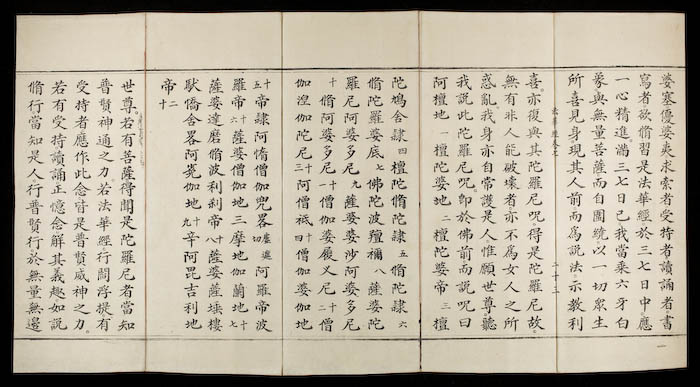 婆塞優婆夷求索者受持者讀誦者書
寫者欲脩習是法華經於三七日中應
一心精進滿三七日已我當乘六牙白
象與無量菩薩而自圍繞以一切衆生
所喜見身現其人前而為說法示教利
法華經卷七
喜亦復與其陀羅尼呪得是陀羅尼故
無有非人能破壞者亦不為女人之所
惑亂我身亦自常護是人惟願世尊聽
我說此陀羅尼呪即於佛前而說呪曰
阿檀地一檀陀婆地二檀陀婆帝三檀
陀鳩舍隷四檀陀脩陀隷五脩陀隷六
脩陀羅婆底七佛陀波羶禰八薩婆陀
羅尼阿婆多尼九薩婆婆沙阿婆多尼
十脩阿婆多尼十一僧伽婆履叉尼十二僧
伽涅伽陀尼十三阿僧祇十四僧婆伽地
十五帝隷阿惰僧伽兜畧盧遮切阿羅帝波
羅帝十六薩婆僧伽地三摩地伽蘭地十七
薩婆達磨脩波利剎帝十八薩婆薩埵樓
馱憍舍畧阿㝹伽地十九辛阿毘吉利地
帝二十
世尊若有菩薩得聞是陀羅尼者當知
普賢神通之力若法華經行閻浮提有
受持者應作此念皆是普賢威神之力
若有受持讀誦正憶念解其義趣如說
脩行當知是人行普賢行於無量無邊